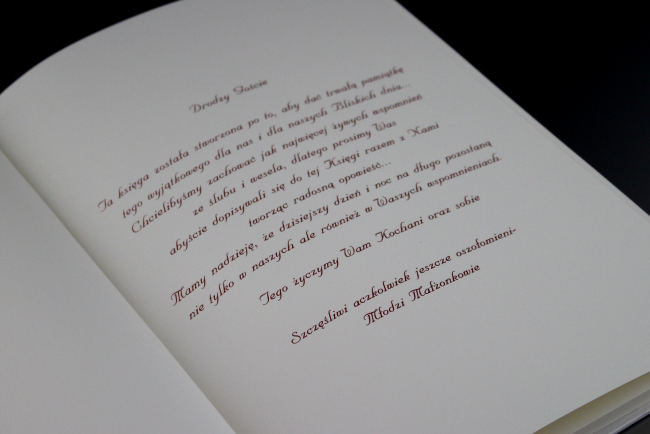 Drodzy Goście
Ta księga została stworzona po to, aby dać trwałą pamiątkę
tego wyjątkowego dla nas i dla naszych Bliskich dnia...
Chcielibyśmy zachować jak najwięcej żywych wspomnień
ze ślubu i wesela, dlatego prosimy Was
abyście dopisywali się do tej Księgi razem z Nami
tworząc radosną opowieść...
Mamy nadzieję, że dzisiejszy dzień i noc na długo pozostaną
nie tylko w naszych ale również w Waszych wspomnieniach.
Tego życzymy Wam Kochani oraz sobie
Szczęśliwi aczkolwiek jeszcze oszołomieni-
Młodzi Małżonkowie